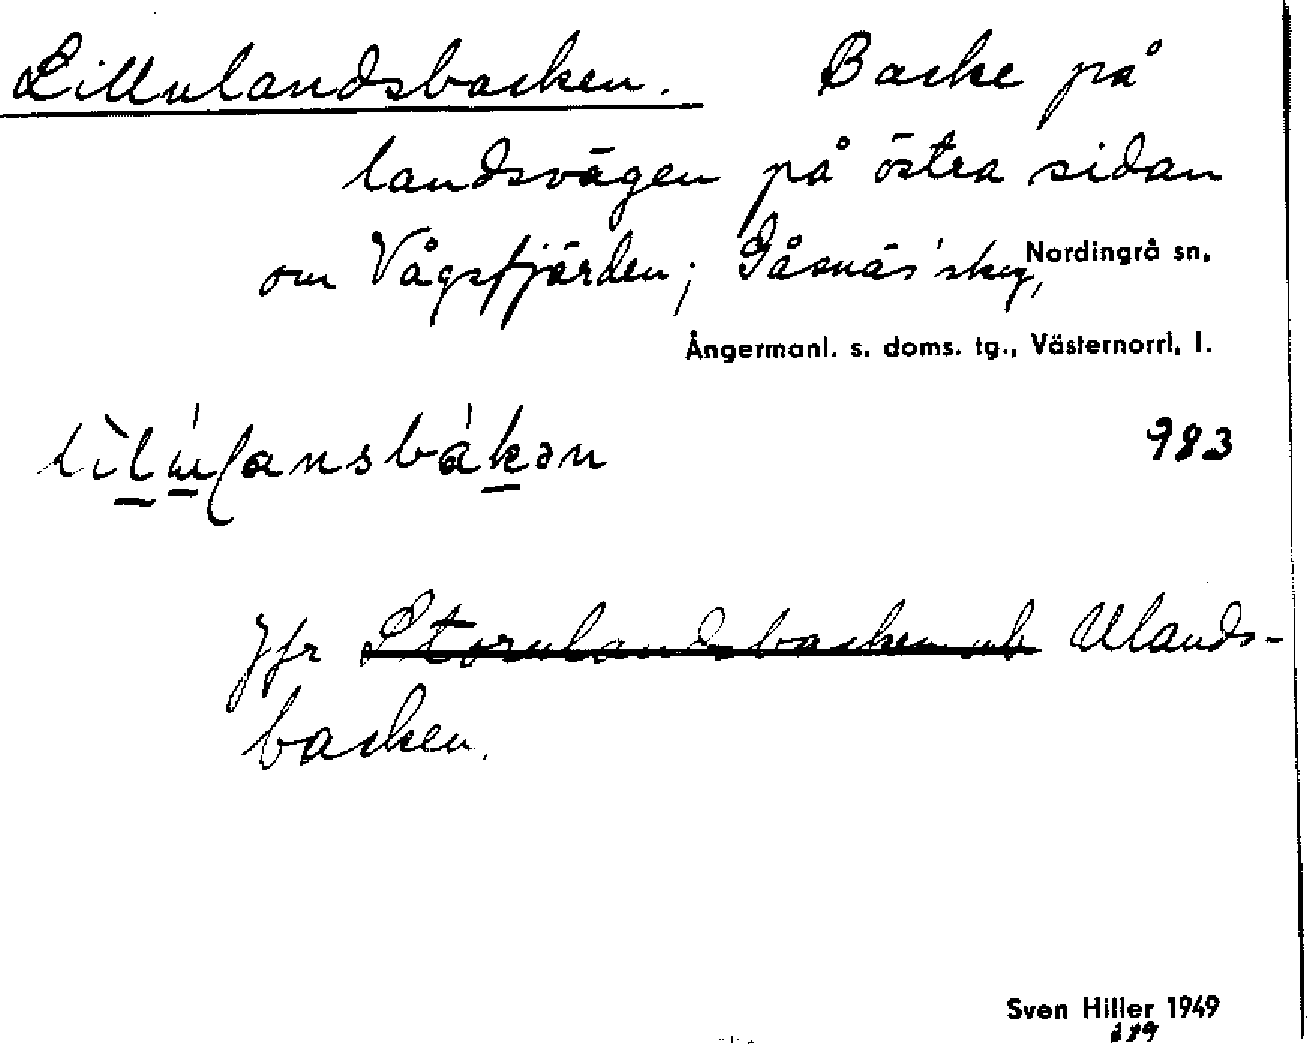 Lillulandsbacken. Backe på
landsvägen på östra sidan
om Vågsfjärden; Gåsnäs'sky,
Nordingrå sn,
Ångermanl. s. doms. tg., Västernorrl. l.
983
Jfr Storulandsbacken och Ulands-
backen.
Sven Hiller 1949